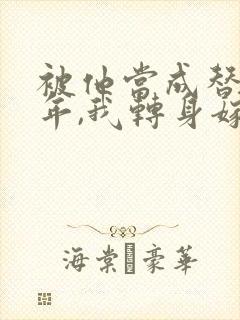 被他當成替
年,我轉身嫁
海棠 豪華